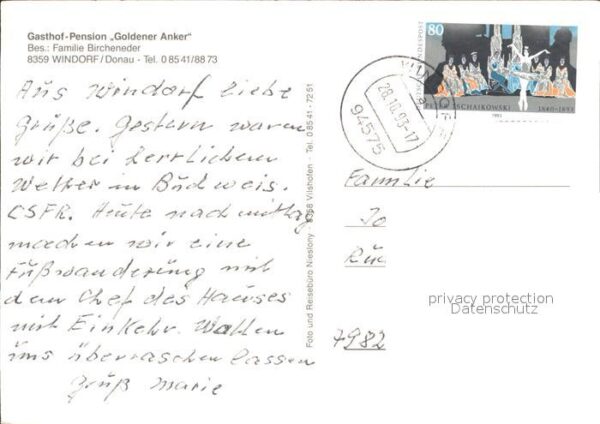 Gasthof-Pension „Goldener Anker“
Bes.: Familie Bircheneder
8359 WINDORF/Donau - Tel. 0 85 41/88 73
Aus Windorf liebe
Grüße. Gestern waren
wir bei herrlichem
Wetter in Budweis.
CSFR. Heute nachmittag
machen wir eine
Fußwanderung mit
dem Chef des Hauses
mit Einkehr. Wollen
uns überraschen lassen
Gruß Marie
Foto und Reisebüro Nieslony - 8358 Vilshofen - Tel. 0 85 41 - 72 51
80
TSCHAIKOWSKI
1840-1893
1993
WINDORF
a
28.10.93-17
94575
Familie
Jo
Rüc
7982
privacy protection
Datenschutz